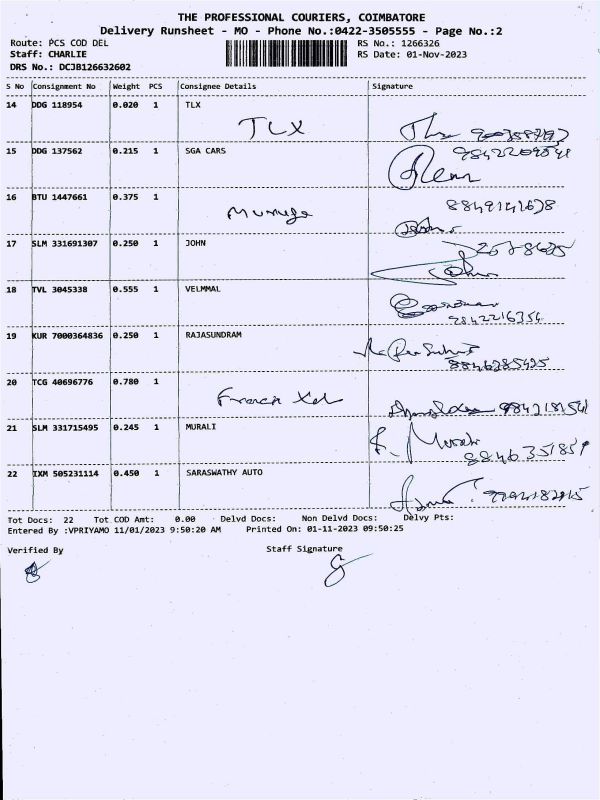 THE PROFESSIONAL COURIERS, COIMBATORE
Delivery Runsheet - MO - Phone No.:0422-3505555 - Page No.:2
Route: PCS COD DEL RS No.: 1266326
Staff: CHARLIE RS Date: 01-Nov-2023
DRS No.: DCJB126632602
S No Consignment No Weight PCS Consignee Details Signature
14 DDG 118954 0.020 1 TLX
TLX
15 DDG 137562 0.215 1 SGA CARS
16 BTU 1447661 0.375 1
17 SLM 331691307 0.250 1 JOHN
18 TVL 3045338 0.555 1 VELMMAL
9842216354
19 KUR 7000364836 0.250 1 RAJASUNDRAM
20 TCG 40696776 0.780 1
21 SLM 331715495 0.245 1 MURALI
22 IXM 505231114 0.450 1 SARASWATHY AUTO
Tot Docs: 22 Tot COD Amt: 0.00 Delvd Docs: Non Delvd Docs: Delvy Pts:
Entered By :VPRIYAMO 11/01/2023 9:50:20 AM Printed On: 01-11-2023 09:50:25
Verified By Staff Signature